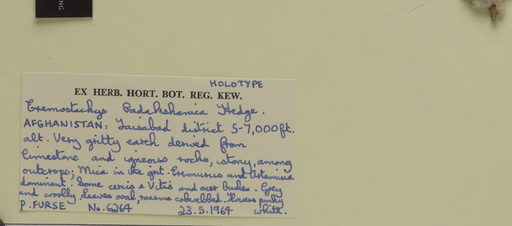 NG
HOLOTYPE
EX HERB. HORT. BOT. REG. KEW.
Eremostachys Badakhshanica Hedge.
AFGHANISTAN: Faisabad district 5-7,000ft.
alt. Very gritty earth derived from
limestone and igneous rocks, stony, among
outcrops; Mica in the grit. Eremurus and Artemisia
dominant. Some cercis & Vitis and acer bushes. Grey
and woolly, leaves oval, raceme cobwebbed. Flowers pinky
P. FURSE No. 6264 23.5.1964 white.